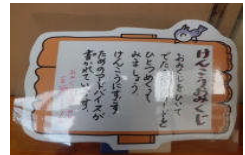 けんこうおみくじ
おみくじをひいて
でたカードを
ひとつめくって
みましょう。
けんこうにすごす
ためのアドバイスが
書かれています。